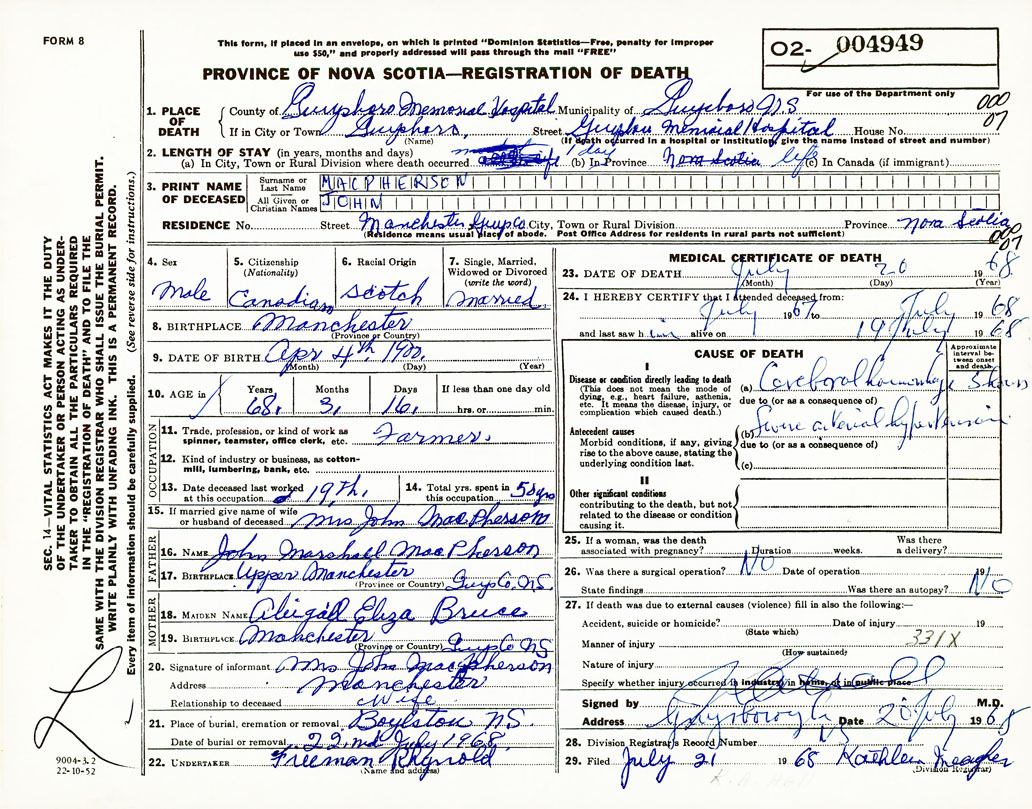 FORM 8
This form, if placed in an envelope, on which is printed "Dominion Statistics—Free, penalty for improper
use $50," and properly addressed will pass through the mail "FREE"
O2- 004949
PROVINCE OF NOVA SCOTIA—REGISTRATION OF DEATH
For use of the Department only
000
07
1. PLACE OF DEATH
County of Guysboro Memorial Hospital Municipality of Guysboro N.S
If in City or Town Guysboro, Street Guysboro Memorial Hospital House No.
(Name) (If death occurred in a hospital or institution, give the name instead of street and number)
2. LENGTH OF STAY (in years, months and days) 1 day
(a) In City, Town or Rural Division where death occurred (b) In Province Nova Scotia life (c) In Canada (if immigrant)
3. PRINT NAME OF DECEASED
Surname or Last Name MACPHERSON
All Given or Christian Names JOHN
RESIDENCE No. Street Manchester Guys Co. City, Town or Rural Division Province Nova Scotia
(Residence means usual place of abode. Post Office Address for residents in rural parts not sufficient)
000
07
4. Sex
Male
5. Citizenship
(Nationality)
Canadian
6. Racial Origin
Scotch
7. Single, Married, Widowed or Divorced
(write the word)
Married
8. BIRTHPLACE Manchester
(Province or Country)
9. DATE OF BIRTH Apr 4th 1900.
(Month) (Day) (Year)
10. AGE in
Years Months Days If less than one day old
68. 3. 16. hrs. or min.
OCCUPATION
11. Trade, profession or kind of work as
spinner, teamster, office clerk, etc. Farmer.
12. Kind of industry or business, as cotton-
mill, lumbering, bank, etc.
13. Date deceased last worked
at this occupation 19th.
14. Total yrs. spent in
this occupation 50 yrs
15. If married give name of wife
or husband of deceased Mrs John MacPherson
FATHER
16. NAME John Marshall MacPherson
17. BIRTHPLACE Upper Manchester Guys Co. N.S.
(Province or Country)
MOTHER
18. MAIDEN NAME Abigail Eliza Bruce
19. BIRTHPLACE Manchester Guys Co NS
(Province or Country)
20. Signature of informant Mrs John MacPherson
Address Manchester
Relationship to deceased Wife
21. Place of burial, cremation or removal Boylston N.S.
Date of burial or removal 22nd July 1968.
22. UNDERTAKER Freeman Reynold
(Name and address)
MEDICAL CERTIFICATE OF DEATH
23. DATE OF DEATH July 20 1968
(Month) (Day) (Year)
24. I HEREBY CERTIFY that I attended deceased from:
July 1967 to July 1968
and last saw h im alive on 19 July 1968
CAUSE OF DEATH
Approximate interval between onset and death
I
Disease or condition directly leading to death
(This does not mean the mode of
dying, e.g., heart failure, asthenia,
etc. It means the disease, injury, or
complication which caused death.)
(a) Cerebral haemorrhage
due to (or as a consequence of)
Antecedent causes
Morbid conditions, if any, giving
rise to the above cause, stating the
underlying condition last.
(b) Severe arterial hypertension
due to (or as a consequence of)
(c)
II
Other significant conditions
contributing to the death, but not
related to the disease or condition
causing it.
25. If a woman, was the death Was there
associated with pregnancy? Duration weeks. a delivery?
26. Was there a surgical operation? NO Date of operation 19
State findings Was there an autopsy? NO
27. If death was due to external causes (violence) fill in also the following:—
Accident, suicide or homicide? Date of injury 19
(State which)
Manner of injury 331X
(How sustained)
Nature of injury
Specify whether injury occurred in industry, in home, or in public place
Signed by M.D.
Address Guysborough NS Date 20 July 1968
28. Division Registrar's Record Number
29. Filed July 21 1968 Kathleen Meagher
(Division Registrar)
SEC. 14—VITAL STATISTICS ACT MAKES IT THE DUTY
OF THE UNDERTAKER OR PERSON ACTING AS UNDER-
TAKER TO OBTAIN ALL THE PARTICULARS REQUIRED
IN THE "REGISTRATION OF DEATH" AND TO FILE THE
SAME WITH THE DIVISION REGISTRAR WHO SHALL ISSUE THE BURIAL PERMIT.
WRITE PLAINLY WITH UNFADING INK. THIS IS A PERMANENT RECORD.
Every item of information should be carefully supplied. (See reverse side for instructions.)
9004-3.2
22-10-52